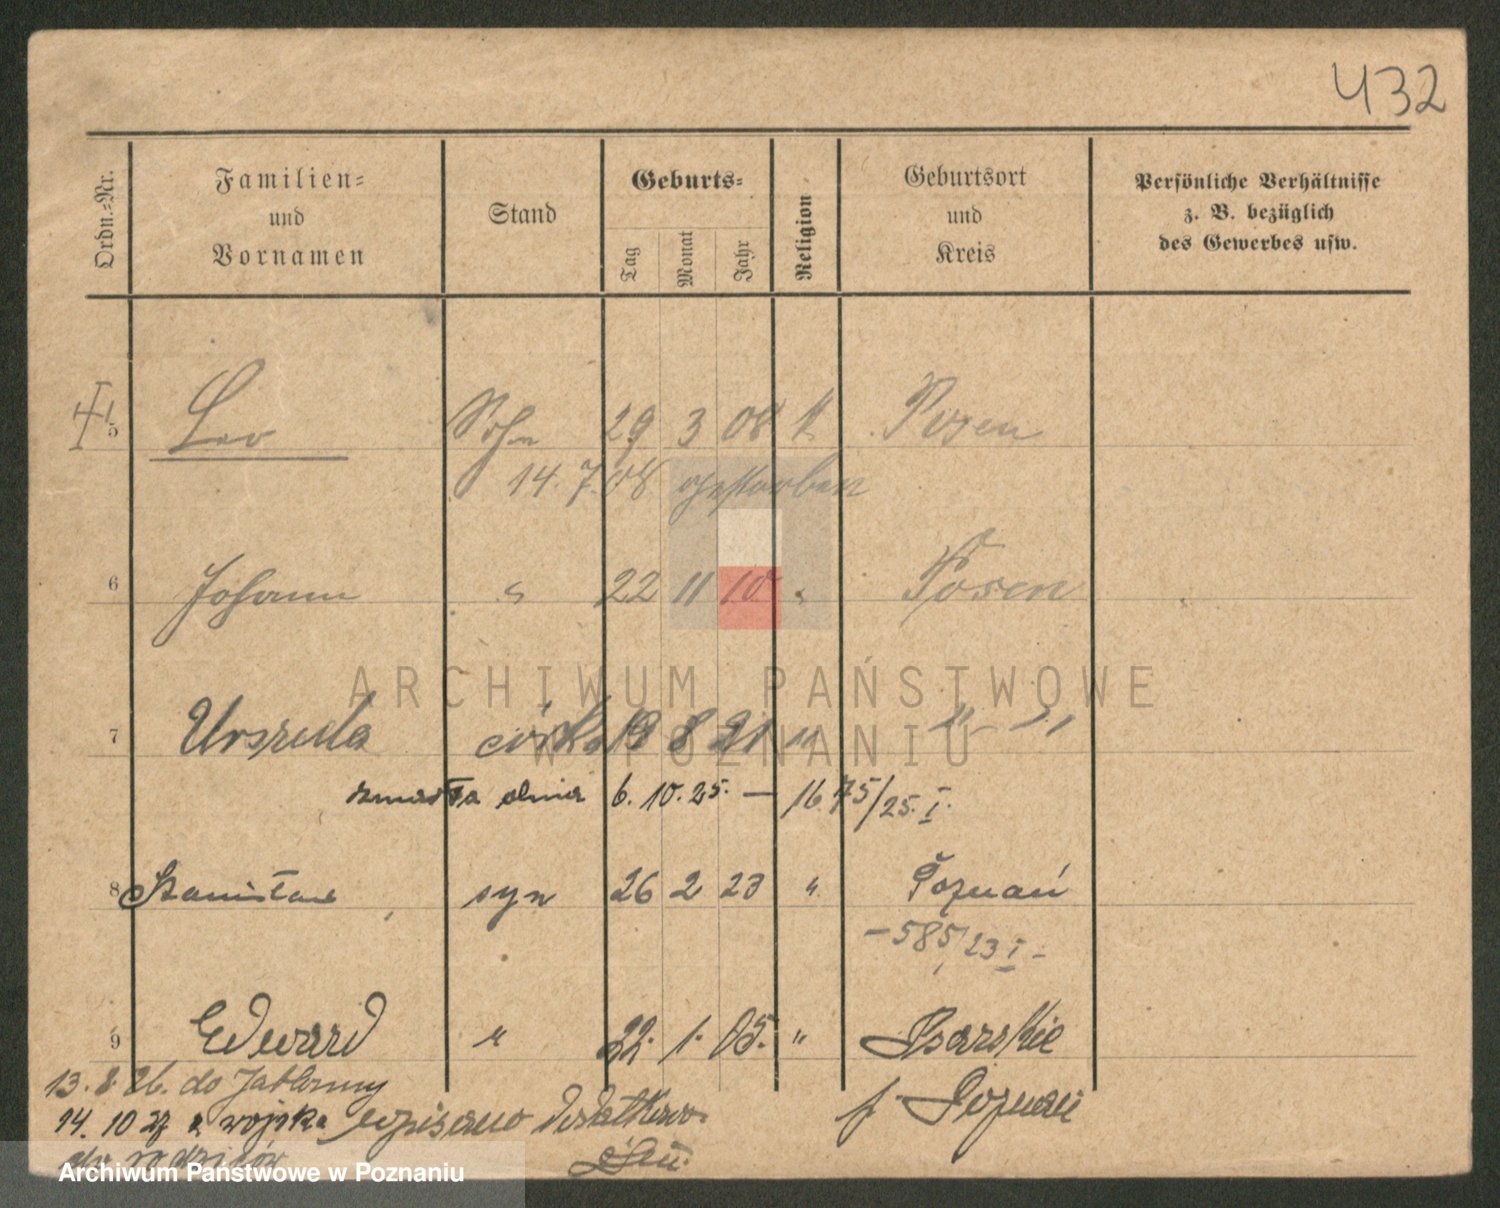 432
Ordn.-Nr.
Familien-
und
Vornamen
Stand
Geburts-
Tag Monat Jahr
Religion
Geburtsort
und
Kreis
Persönliche Verhältnisse
z. B. bezüglich
des Gewerbes usw.
5 Leo Sohn 29 3 08 k Posen
14. 7. 08 gestorben
6 Johann " 22 11 10 " Posen
ARCHIWUM PAŃSTWOWE
W POZNANIU
7 Urszula córka 19 8 21 " " - "
zmarła dnia 6. 10. 25. — 1675/25. I.
8 Stanisław syn 26 2 23 " Poznań
- 585/23 I -
9 Edward " 22. 1. 05. " Psarskie
13. 8. 26. do Jabłonny
p. Poznań
14. 10 27 z wojska wpisano dodatkowo
do rodziców
Archiwum Państwowe w Poznaniu